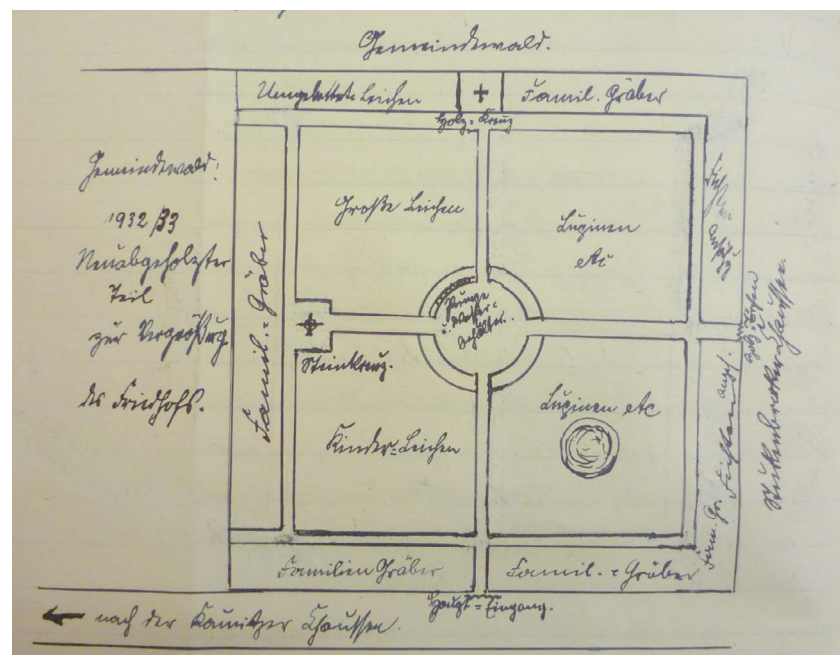 Gemeindewald.
Umgebettete Leichen
Famil. Gräber
Holz-Kreuz
Gemeindewald.
1932/33
Neuabgeholzter
Teil
zur Vergrößrug
des Friedhofs.
Famil.-Gräber
Große Leichen
Lupinen
etc
Pumpe
u. Wasser-
behälter.
Steinkreuz.
Kinder-Leichen
Lupinen etc
Fichten
Holz
Fam. Gr. Fichten
Stukenbrocker-Chaussee.
Familien Gräber
Famil.-Gräber
Haupt-Eingang.
nach der Kaunitzer Chaussee.